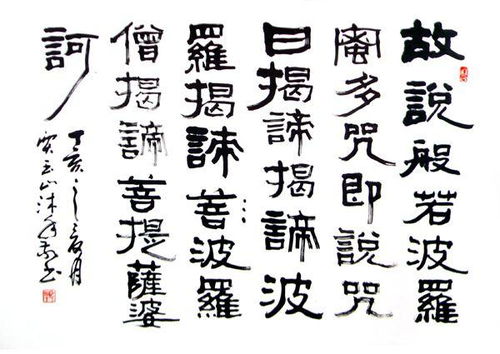 故說般若波羅
蜜多咒即說咒
曰揭諦揭諦波
羅揭諦菩波羅
僧揭諦菩提薩婆
訶
丁亥之
山沐手